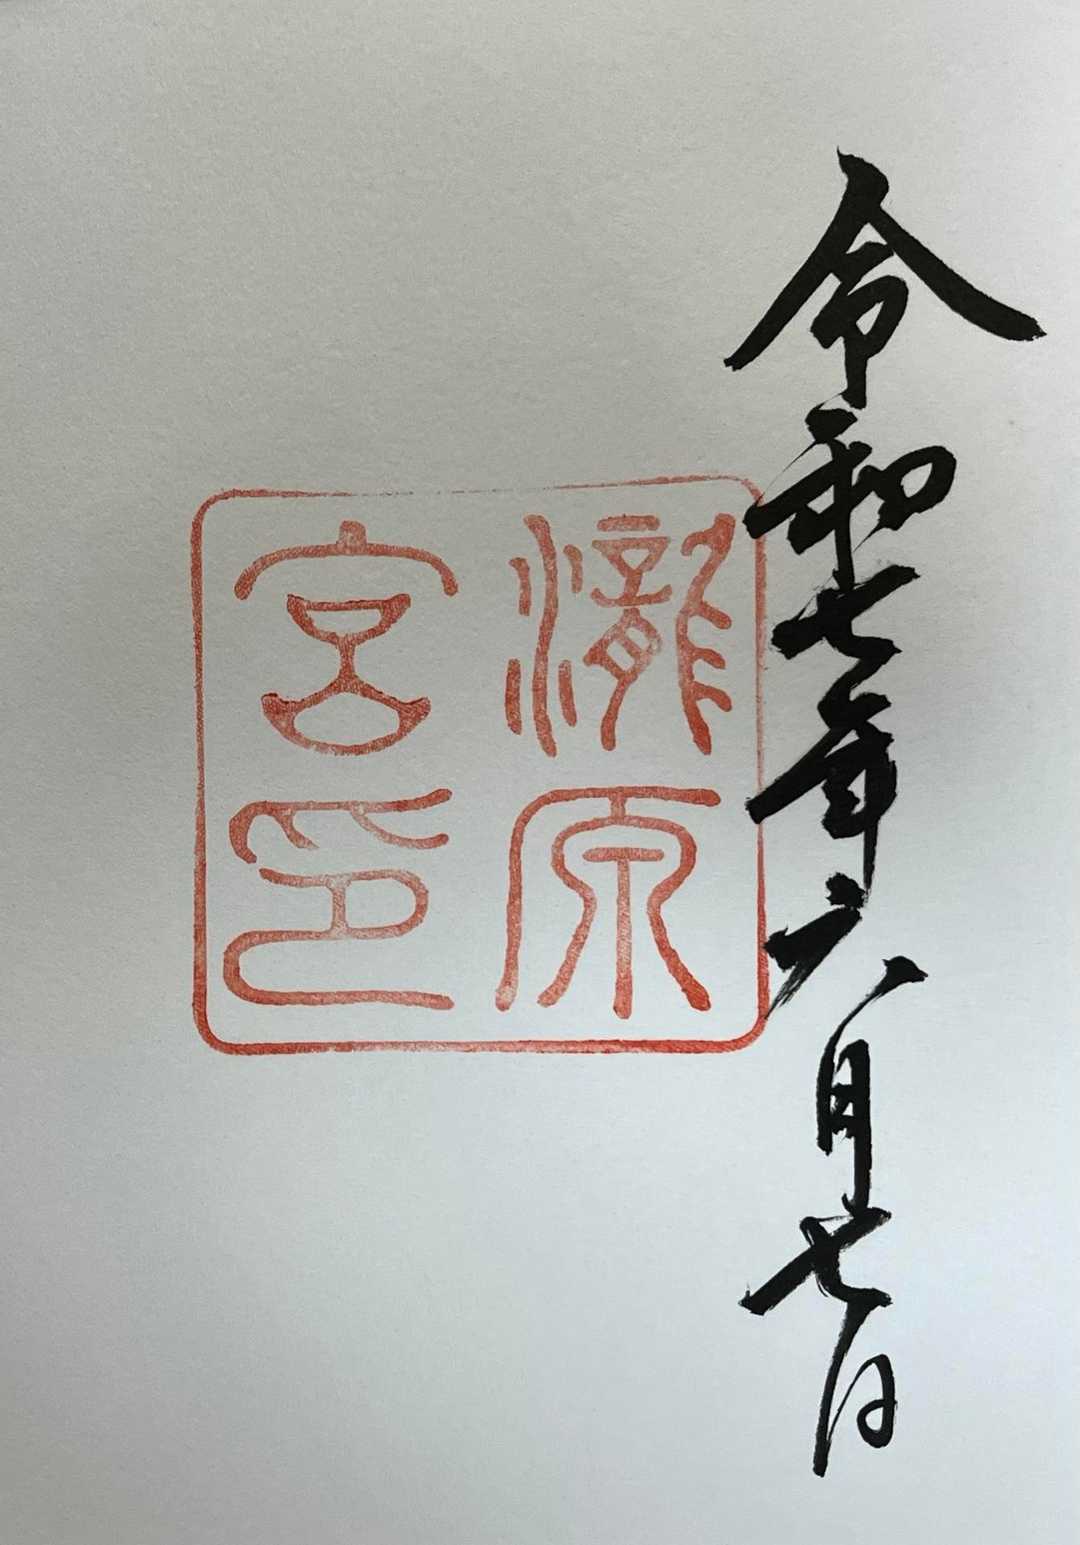 令和七年六月七日
瀧原
宮印